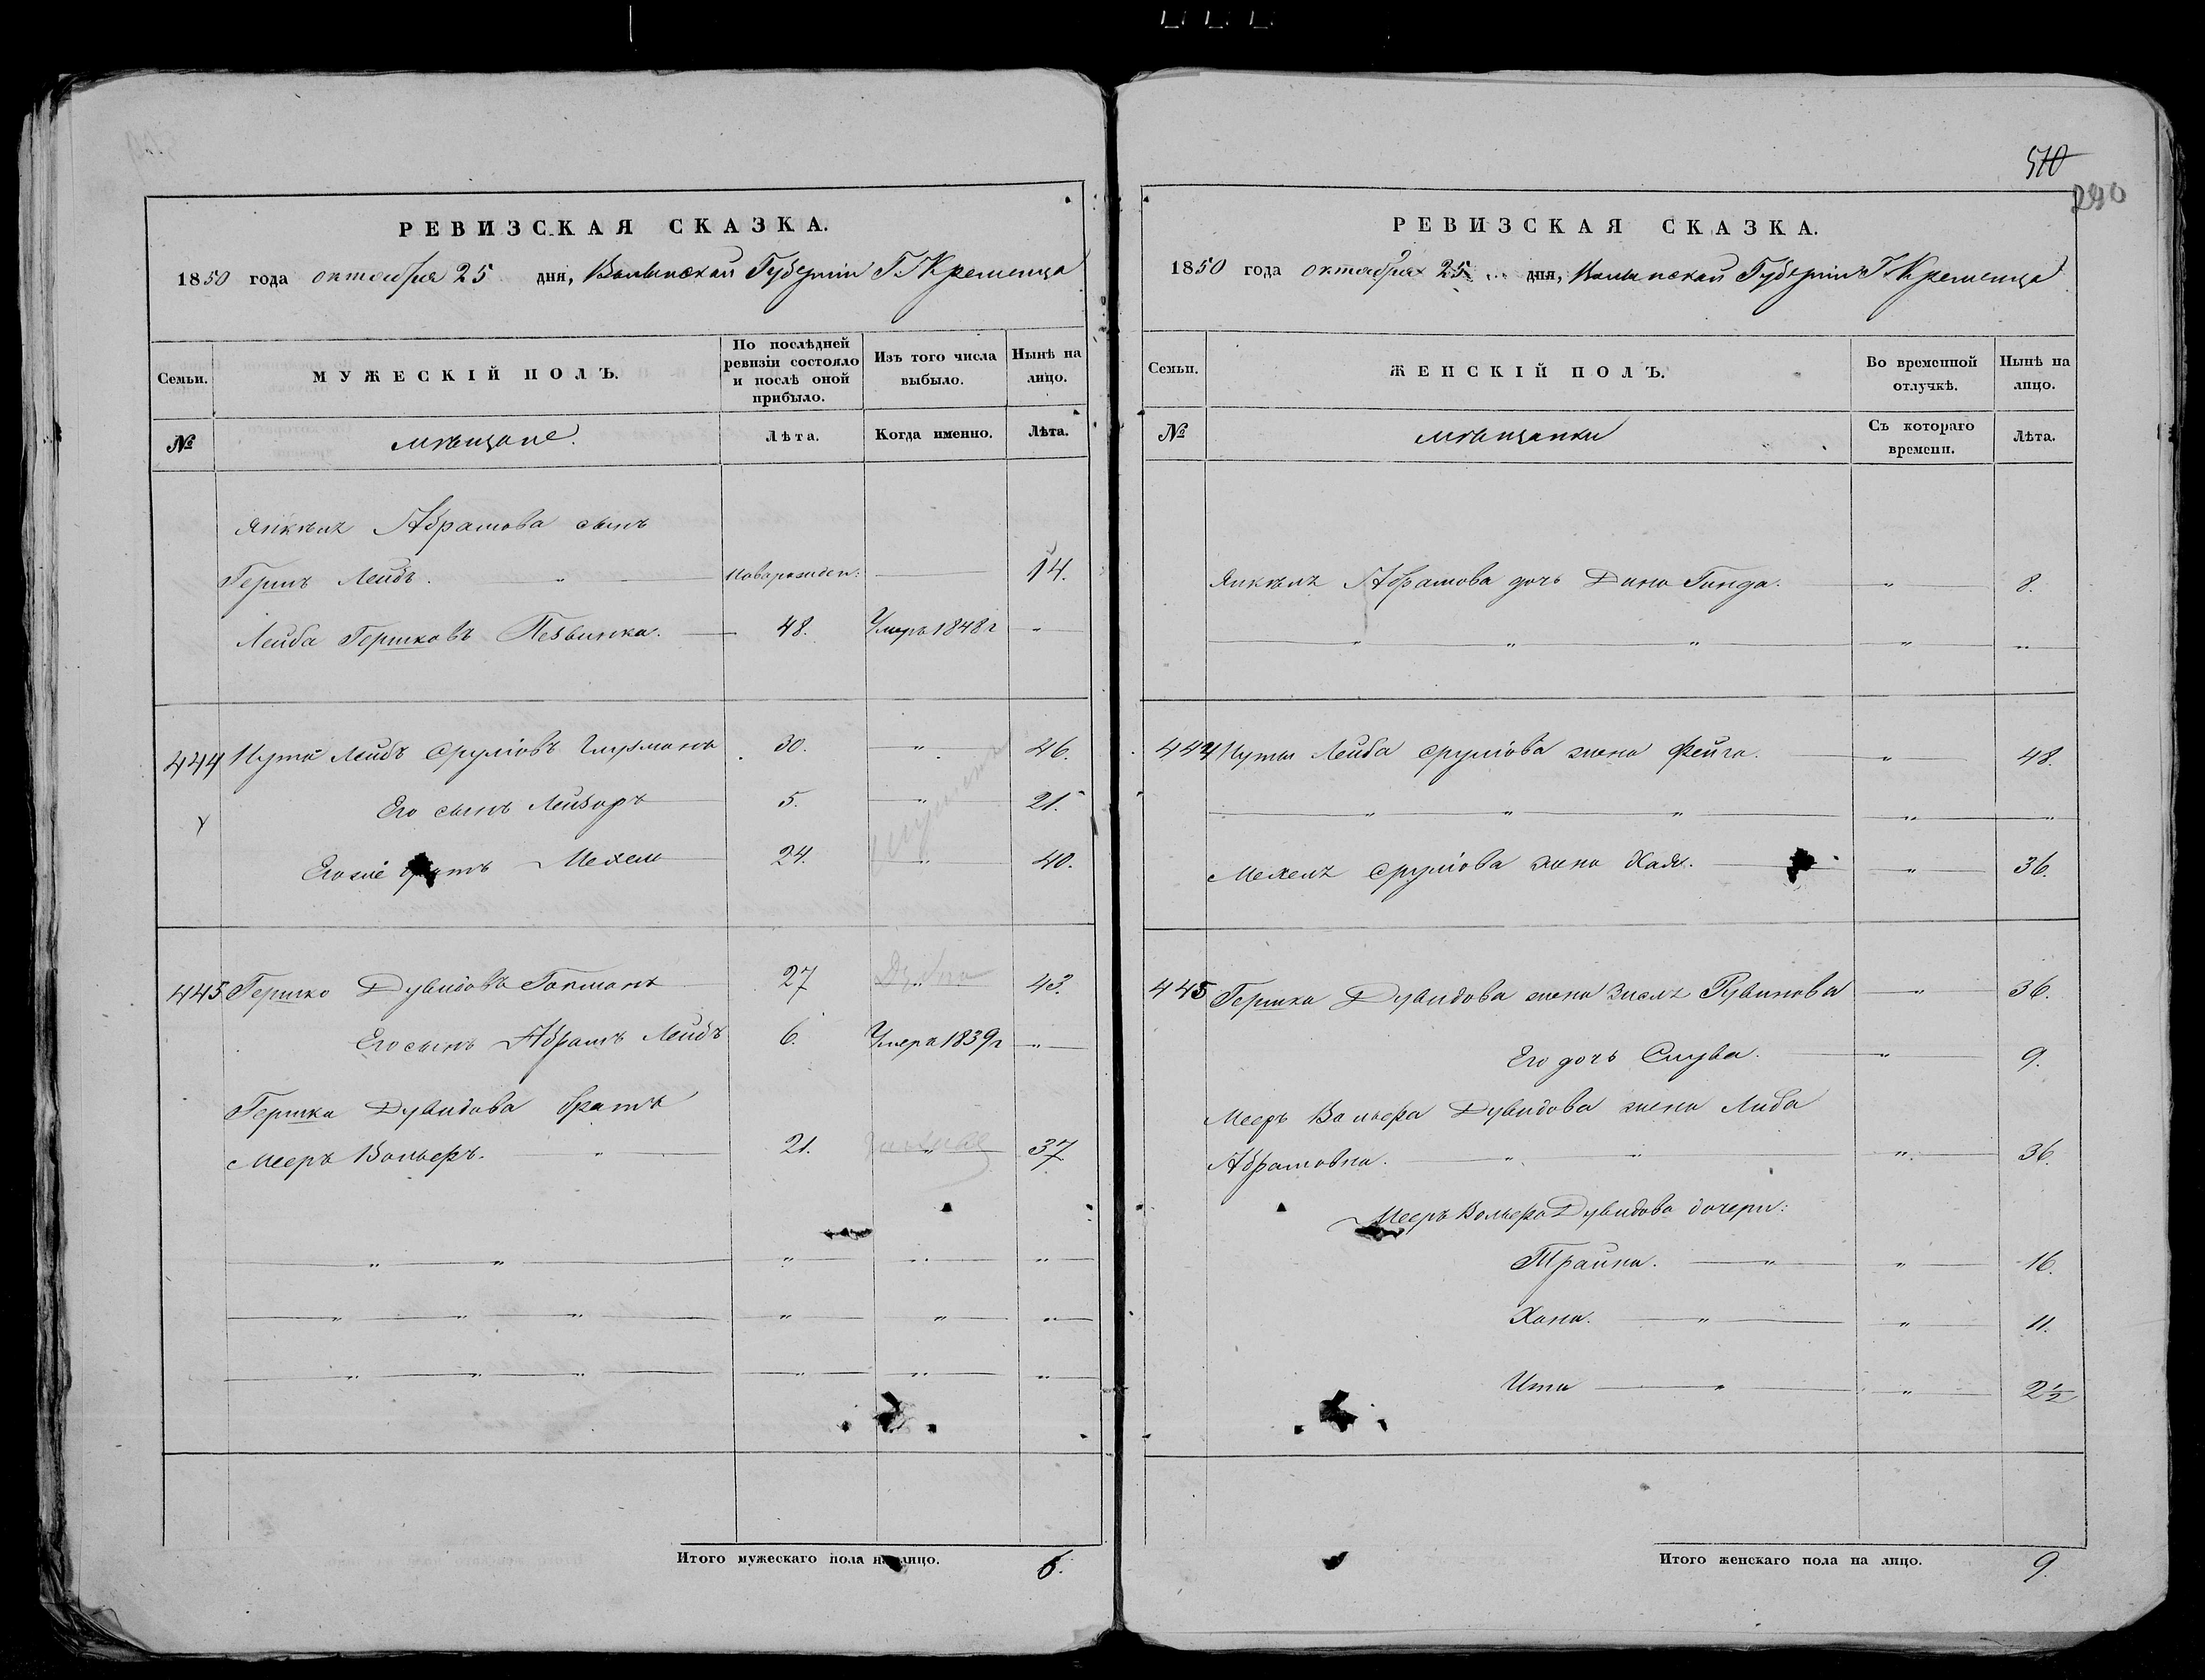 РЕВИЗСКАЯ СКАЗКА.
1850 года октября 25 дня, Волынской Губерніи Г. Кременца
Семьи.
МУЖЕСКІЙ ПОЛЪ.
По послѣдней ревизіи состояло и послѣ оной прибыло.
Изъ того числа выбыло.
Нынѣ на лицо.
№
мѣщане.
Лѣта.
Когда именно.
Лѣта.
Янкель Абрамова сынъ
Гершъ Лейбъ. " новорожден: 14.
Лейба Гершковъ 48. Умеръ 1848 г "
444 Нута Лейбъ Сруліовъ 30. " 46.
Его сынъ Лейзоръ 5. " 21.
Его же братъ Мехель 24. " 40.
445 Гершко Дувидовъ 27 Дубно " 43.
Его сынъ Абрамъ Лейбъ 6. Умеръ 1839 г "
Гершка Дувидова братъ
Мееръ Вольферъ. " 21. " 37
" " " " "
" " " " " "
" " " " " "
Итого мужескаго пола на лицо. 6.
510
290
РЕВИЗСКАЯ СКАЗКА.
1850 года октября 25 дня, Волынской Губерніи Г. Кременца
Семьи.
ЖЕНСКІЙ ПОЛЪ.
Во временной отлучкѣ.
Нынѣ на лицо.
№
мѣщанки
Съ котораго времени.
Лѣта.
Янкель Абрамова дочь Дина Гинда. " 8.
" " " " "
444 Нуты Лейба Сруліова жена Фейга. " 48.
" " " " "
Мехель Сруліова жена Хая. " 36.
445 Гершка Дувидова жена Зисль Рувинова " 36.
Его дочь Слува. " 9.
Мееръ Вольфера Дувидова жена Либа
Абрамовна. " " " 36.
Мееръ Вольфера Дувидова дочери:
Трайна. " " 16.
Хана. " " 11.
Ита " " 2½
Итого женскаго пола на лицо. 9.